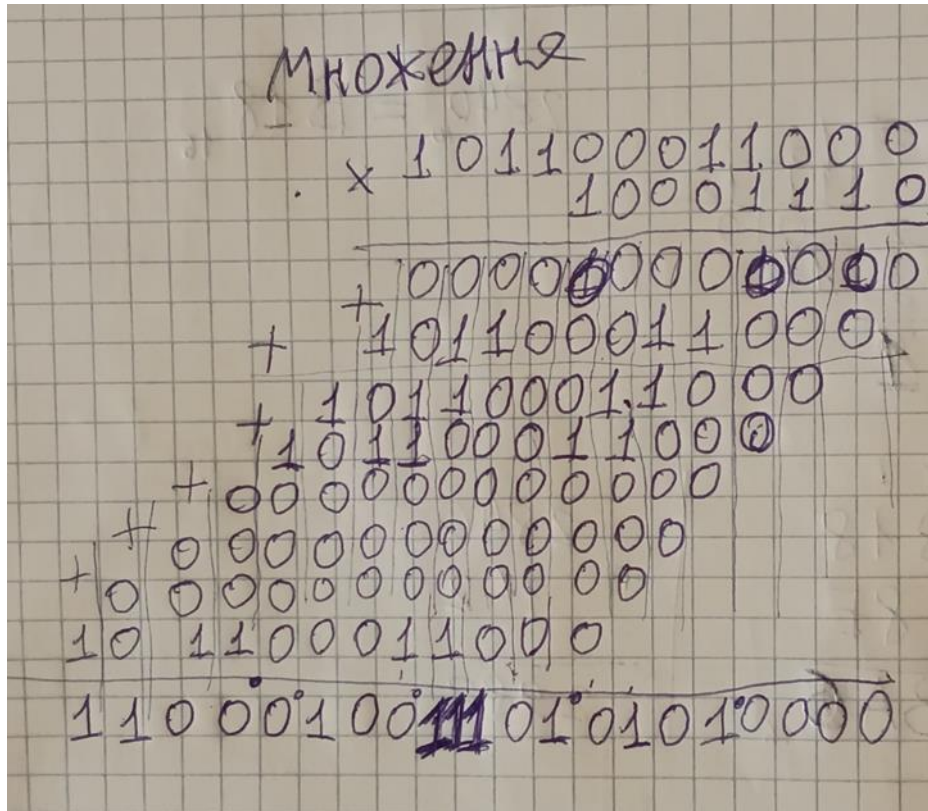 Множення
× 101100011000
10001110
000000000000
+ 101100011000
+ 101100011000
+ 101100011000
+ 000000000000
+ 000000000000
+ 000000000000
101100011000
110001001110101010000